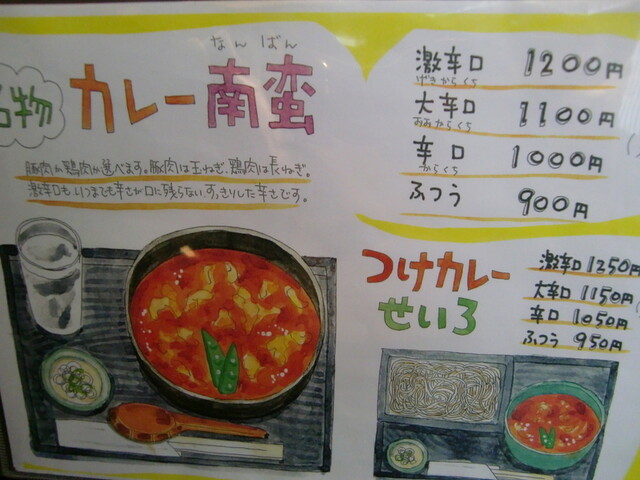 名物
なんばん
カレー南蛮
豚肉か鶏肉か選べます。豚肉は玉ねぎ、鶏肉は長ねぎ。
激辛口も、いつまでも辛さが口に残らない、すっきりした辛さです。
激辛口 1200円
げきからくち
大辛口 1100円
おおからくち
辛口 1000円
からくち
ふつう 900円
つけカレー
せいろ
激辛口 1250円
大辛口 1150円
辛口 1050円
ふつう 950円